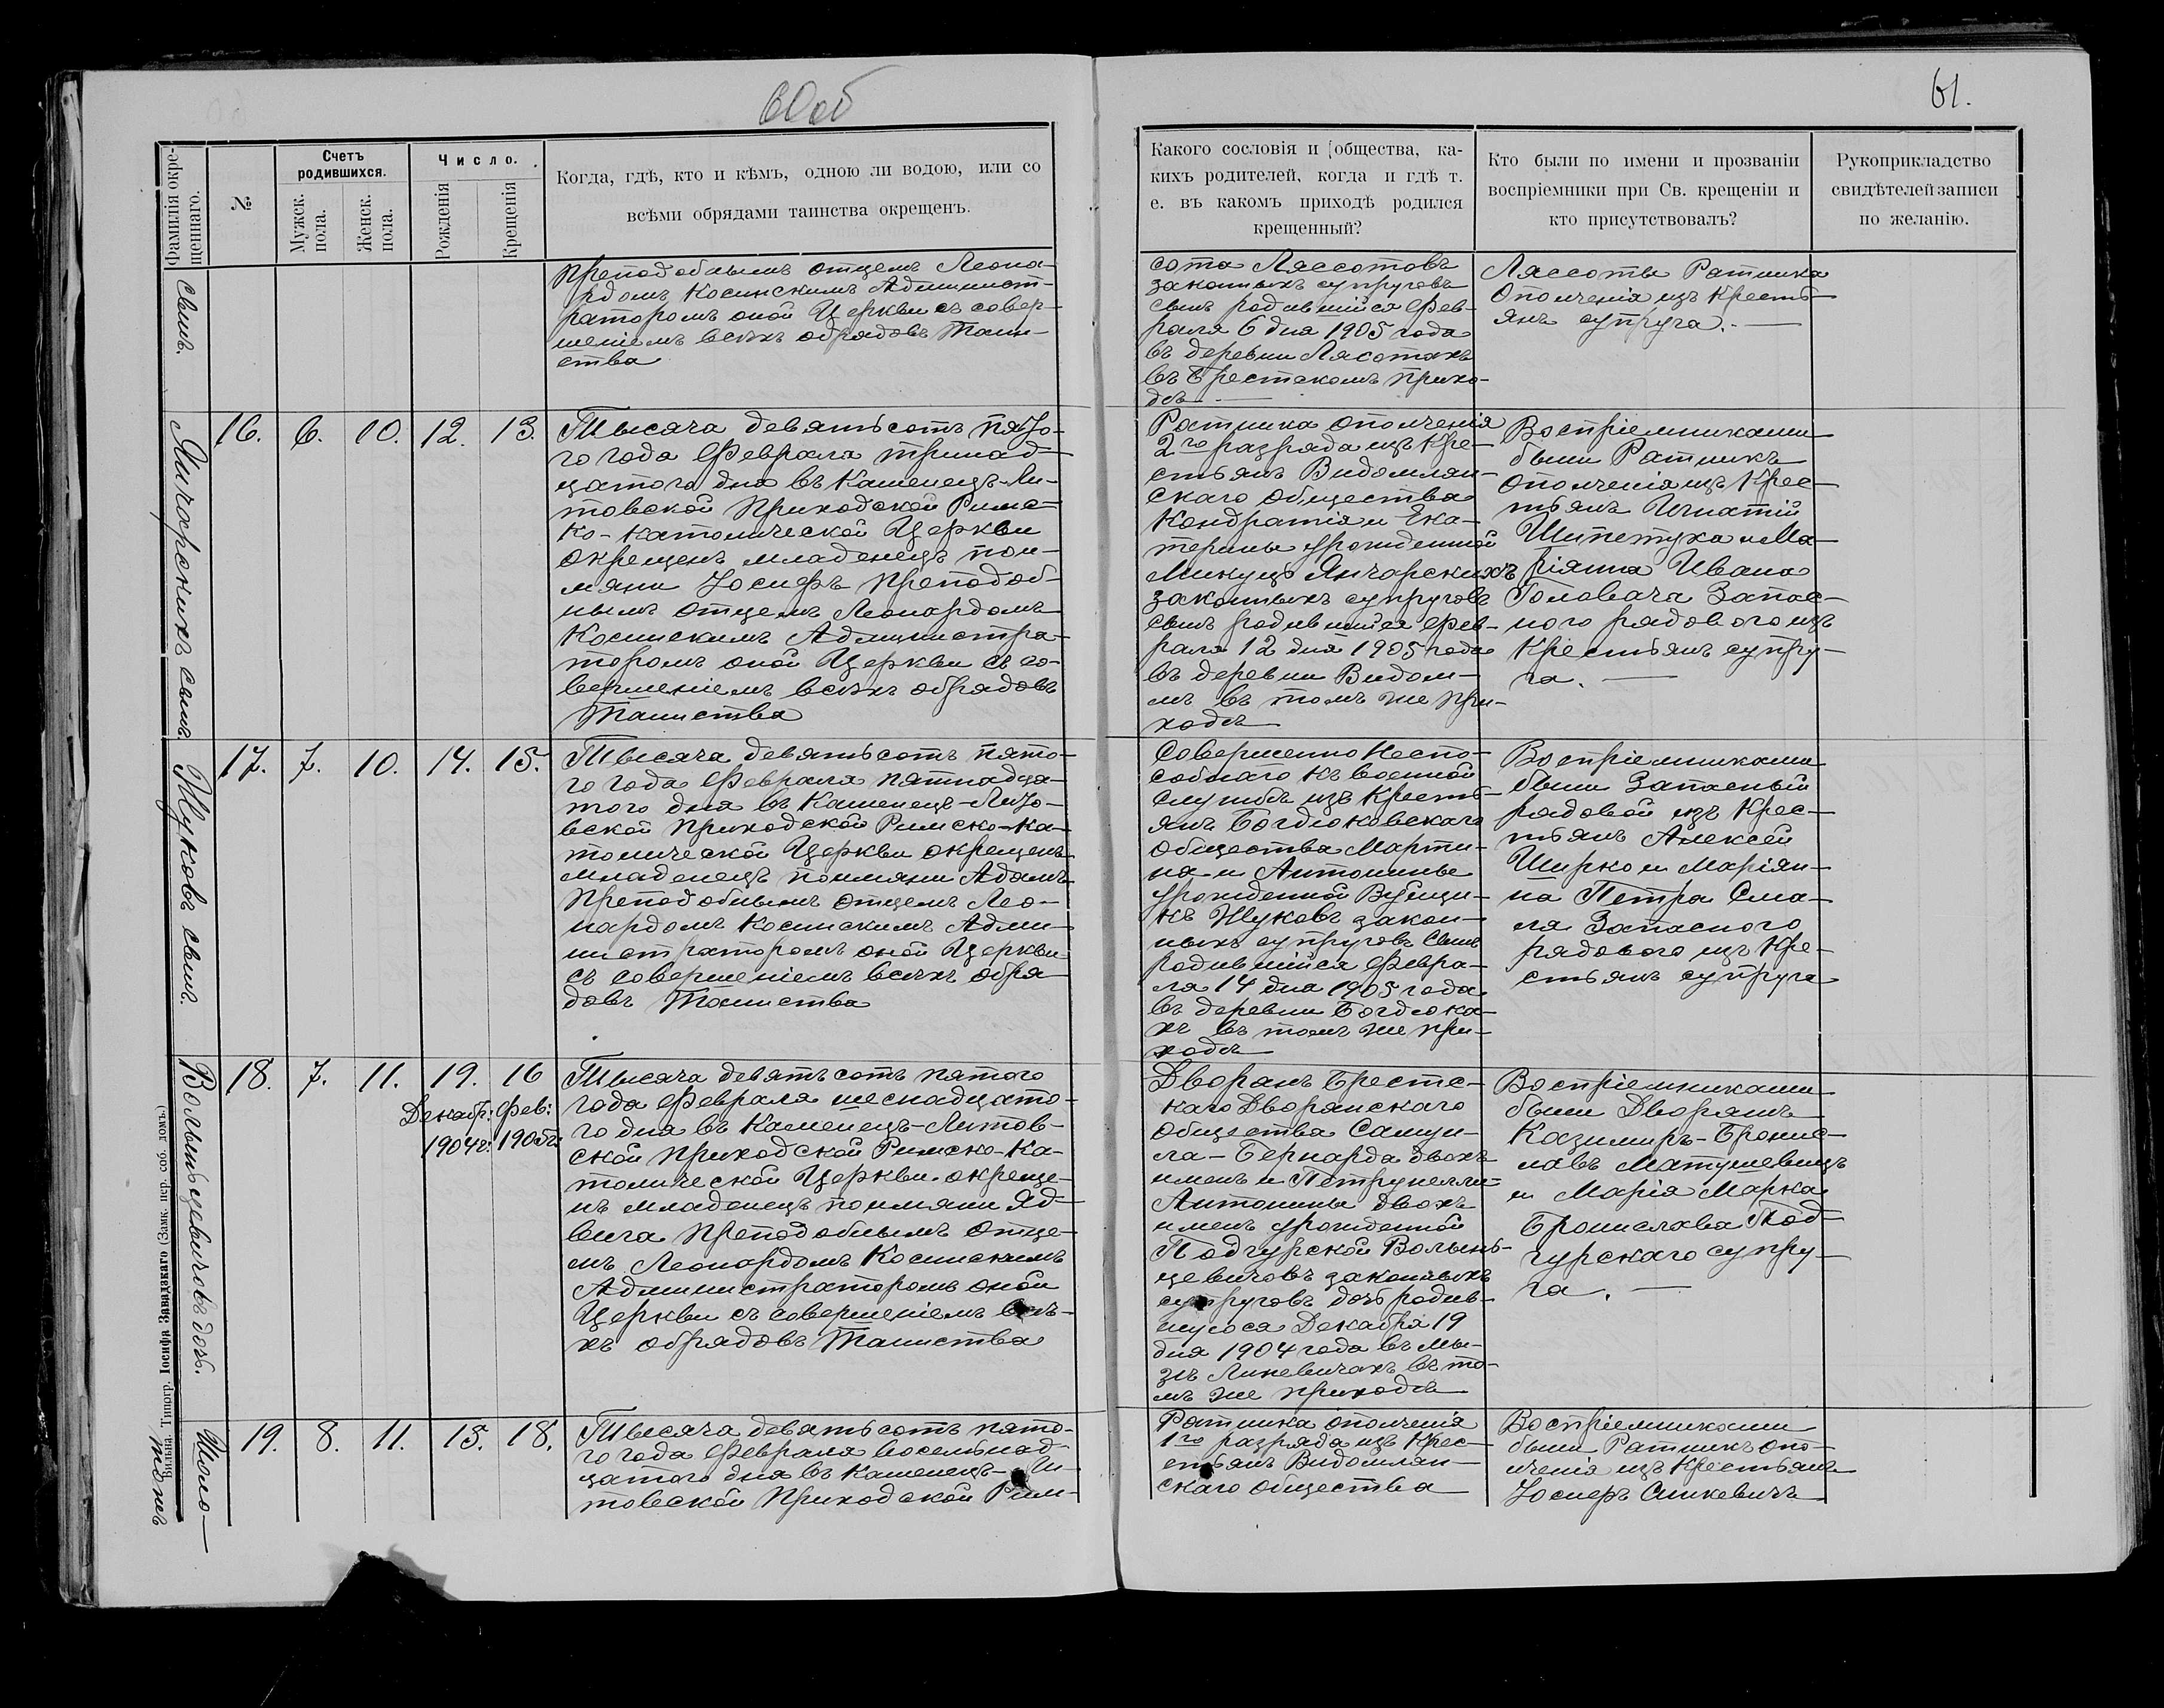 60об
61.
Фамилія окре-
щеннаго.
№
Счетъ
родившихся.
Мужск.
пола.
Женск.
пола.
Число.
Рожденія
Крещенія
Когда, гдѣ, кто и кѣмъ, одною ли водою, или со
всѣми обрядами таинства окрещенъ.
Какого сословія и общества, ка-
кихъ родителей, когда и гдѣ т.
е. въ какомъ приходѣ родился
крещенный?
Кто были по имени и прозваніи
воспріемники при Св. крещеніи и
кто присутствовалъ?
Рукоприкладство
свидѣтелей записи
по желанію.
сынъ.
преподобнымъ отцемъ Леона-
рдомъ Косинскимъ Админист-
раторомъ оной Церкви съ совер-
шеніемъ всѣхъ обрядовъ Таин-
ства
сота Лясотовъ
законныхъ супруговъ
сынъ родившійся Фев-
раля 6 дня 1905 года
въ деревни Лясотахъ
въ Брестскомъ прихо-
дѣ
Лясоты Ратника
Ополченія изъ Кресть-
янъ супруга.
Янчарскихъ сынъ.
16.
6.
10.
12.
13.
Тысяча девятьсотъ пято-
го года Февраля тринад-
цатого дня въ Каменецъ-Ли-
товской Приходской Римс-
ко-Католической Церкви
окрещенъ младенецъ пои-
мяни Іосифъ преподоб-
нымъ отцемъ Леонардомъ
Косинскимъ Администра-
торомъ оной Церкви съ со-
вершеніемъ всѣхъ обрядовъ
Таинства
Ратника ополченія
2го разряда изъ Кре-
стьянъ Видомлян-
скаго общества
Кондратія и Ека-
терины урожденной
Микуцъ Янчарскихъ
законныхъ супруговъ
сынъ родившійся Фев-
раля 12 дня 1905 года
въ деревни Видом-
лѣ въ томъ же при-
ходѣ
Воспріемниками
были Ратникъ
Ополченія изъ Крес-
тьянъ Игнатій
Шипетуха и Ма-
ріянна Ивана
Головача Запас-
ного рядового изъ
Крестьянъ супру-
га.
Жуковъ сынъ.
17.
7.
10.
14.
15.
Тысяча девятьсотъ пято-
го года Февраля пятнадца-
того дня въ Каменецъ-Лито-
вской приходской Римско-Ка-
толической Церкви окрещенъ
младенецъ поимяни Адамъ
Преподобнымъ отцемъ Лео-
нардомъ Косинскимъ Адми-
нистраторомъ оной Церкви
съ совершеніемъ всѣхъ обря-
довъ Таинства
Совершенно Неспо-
собнаго къ военной
службѣ изъ Кресть-
янъ Богдюковскаго
общества Марти-
на и Антонины
урожденной
Жуковъ закон-
ныхъ супруговъ сынъ
родившійся Февра-
ля 14 дня 1905 года
въ деревни Богдюка-
хъ въ томъ же при-
ходѣ
Воспріемниками
были Запасный
рядовой изъ Крес-
тьянъ Алексѣй
Ширко и Маріян-
на Петра Сма-
ля Запасного
рядового изъ Кре-
стьянъ супруга
Волынцевичовъ дочь.
18.
7.
11.
19.
Декабр:
1904г:
16
Фев:
1905г:
Тысяча девятьсотъ пятого
года Февраля шеснадцато-
го дня въ Каменецъ-Литов-
ской приходской Римско-Ка-
толической Церкви окреще-
нъ младенецъ поимяни Яд-
вига преподобнымъ Отце-
мъ Леонардомъ Косинскимъ
Администраторомъ оной
Церкви съ совершеніемъ всѣ-
хъ обрядовъ Таинства
Дворянъ Брестс-
каго Дворянскаго
общества Самуи-
ла-Бернарда двохъ
именъ и Петрунелли-
Антонины двохъ
именъ урожденной
Подгурской Волын-
цевичовъ законныхъ
супруговъ дочь родив-
шуюся Декабря 19
дня 1904 года въ мы-
зѣ Линевичахъ въ то-
мъ же приходѣ
Воспріемниками
были Дворянъ
Казимиръ-Бронис-
лавъ Матушевицъ
и Марія Марка
Бронислава Под-
гурскаго супру-
га.
19.
8.
11.
15.
18.
Тысяча девятьсотъ пято-
го года Февраля восемьнад-
цатого дня въ Каменецъ-Ли-
товской Приходской Рим-
Ратника ополченія
1го разряда изъ Крес-
стьянъ Видомлян-
скаго общества
Воспріемниками
были Ратникъ опо-
лченія изъ Крестьянъ
Іосифъ Сашкевичъ
Вильна. Типогр. Іосифа Завадзкаго (Замк. пер. соб. домъ.)